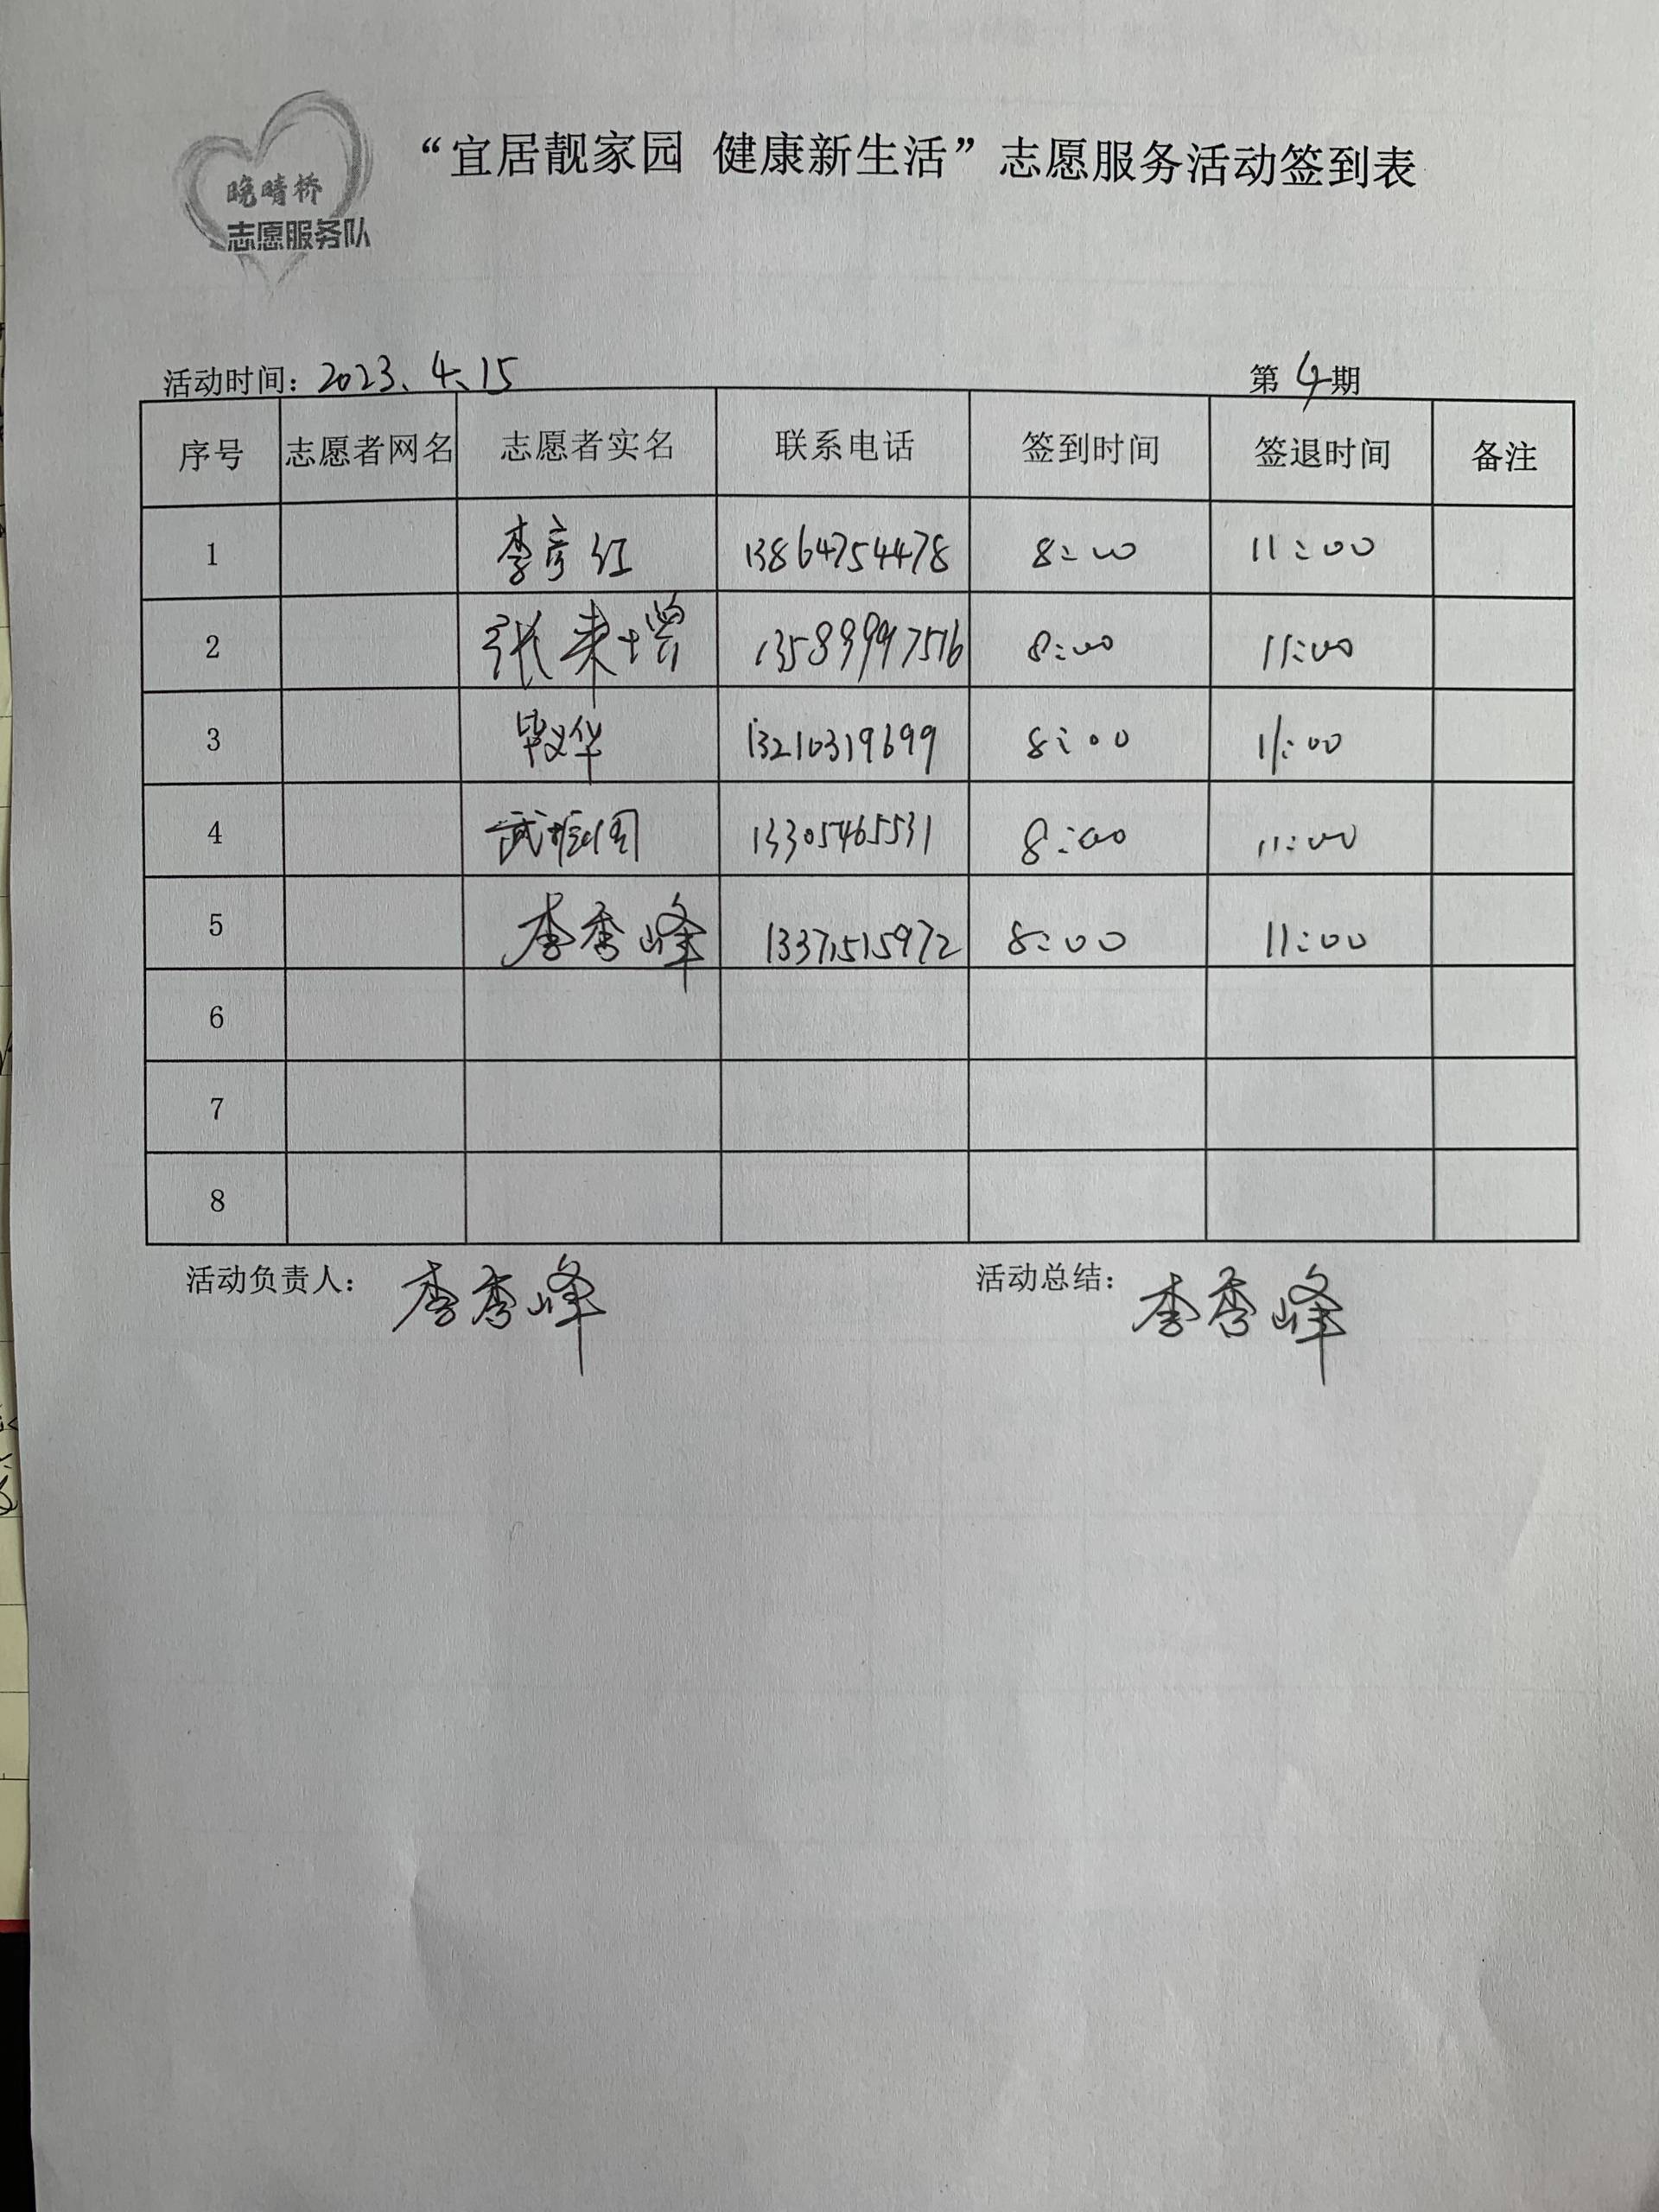 晚晴桥
志愿服务队
“宜居靓家园 健康新生活”志愿服务活动签到表
活动时间：2023、4、15 第4期
序号 志愿者网名 志愿者实名 联系电话 签到时间 签退时间 备注
1 李彦红 13864754478 8:00 11:00
2 张来增 13589997516 8:00 11:00
3 毕义华 13210319699 8:00 11:00
4 武 13305465531 8:00 11:00
5 李秀峰 13371515972 8:00 11:00
6
7
8
活动负责人：李秀峰 活动总结：李秀峰